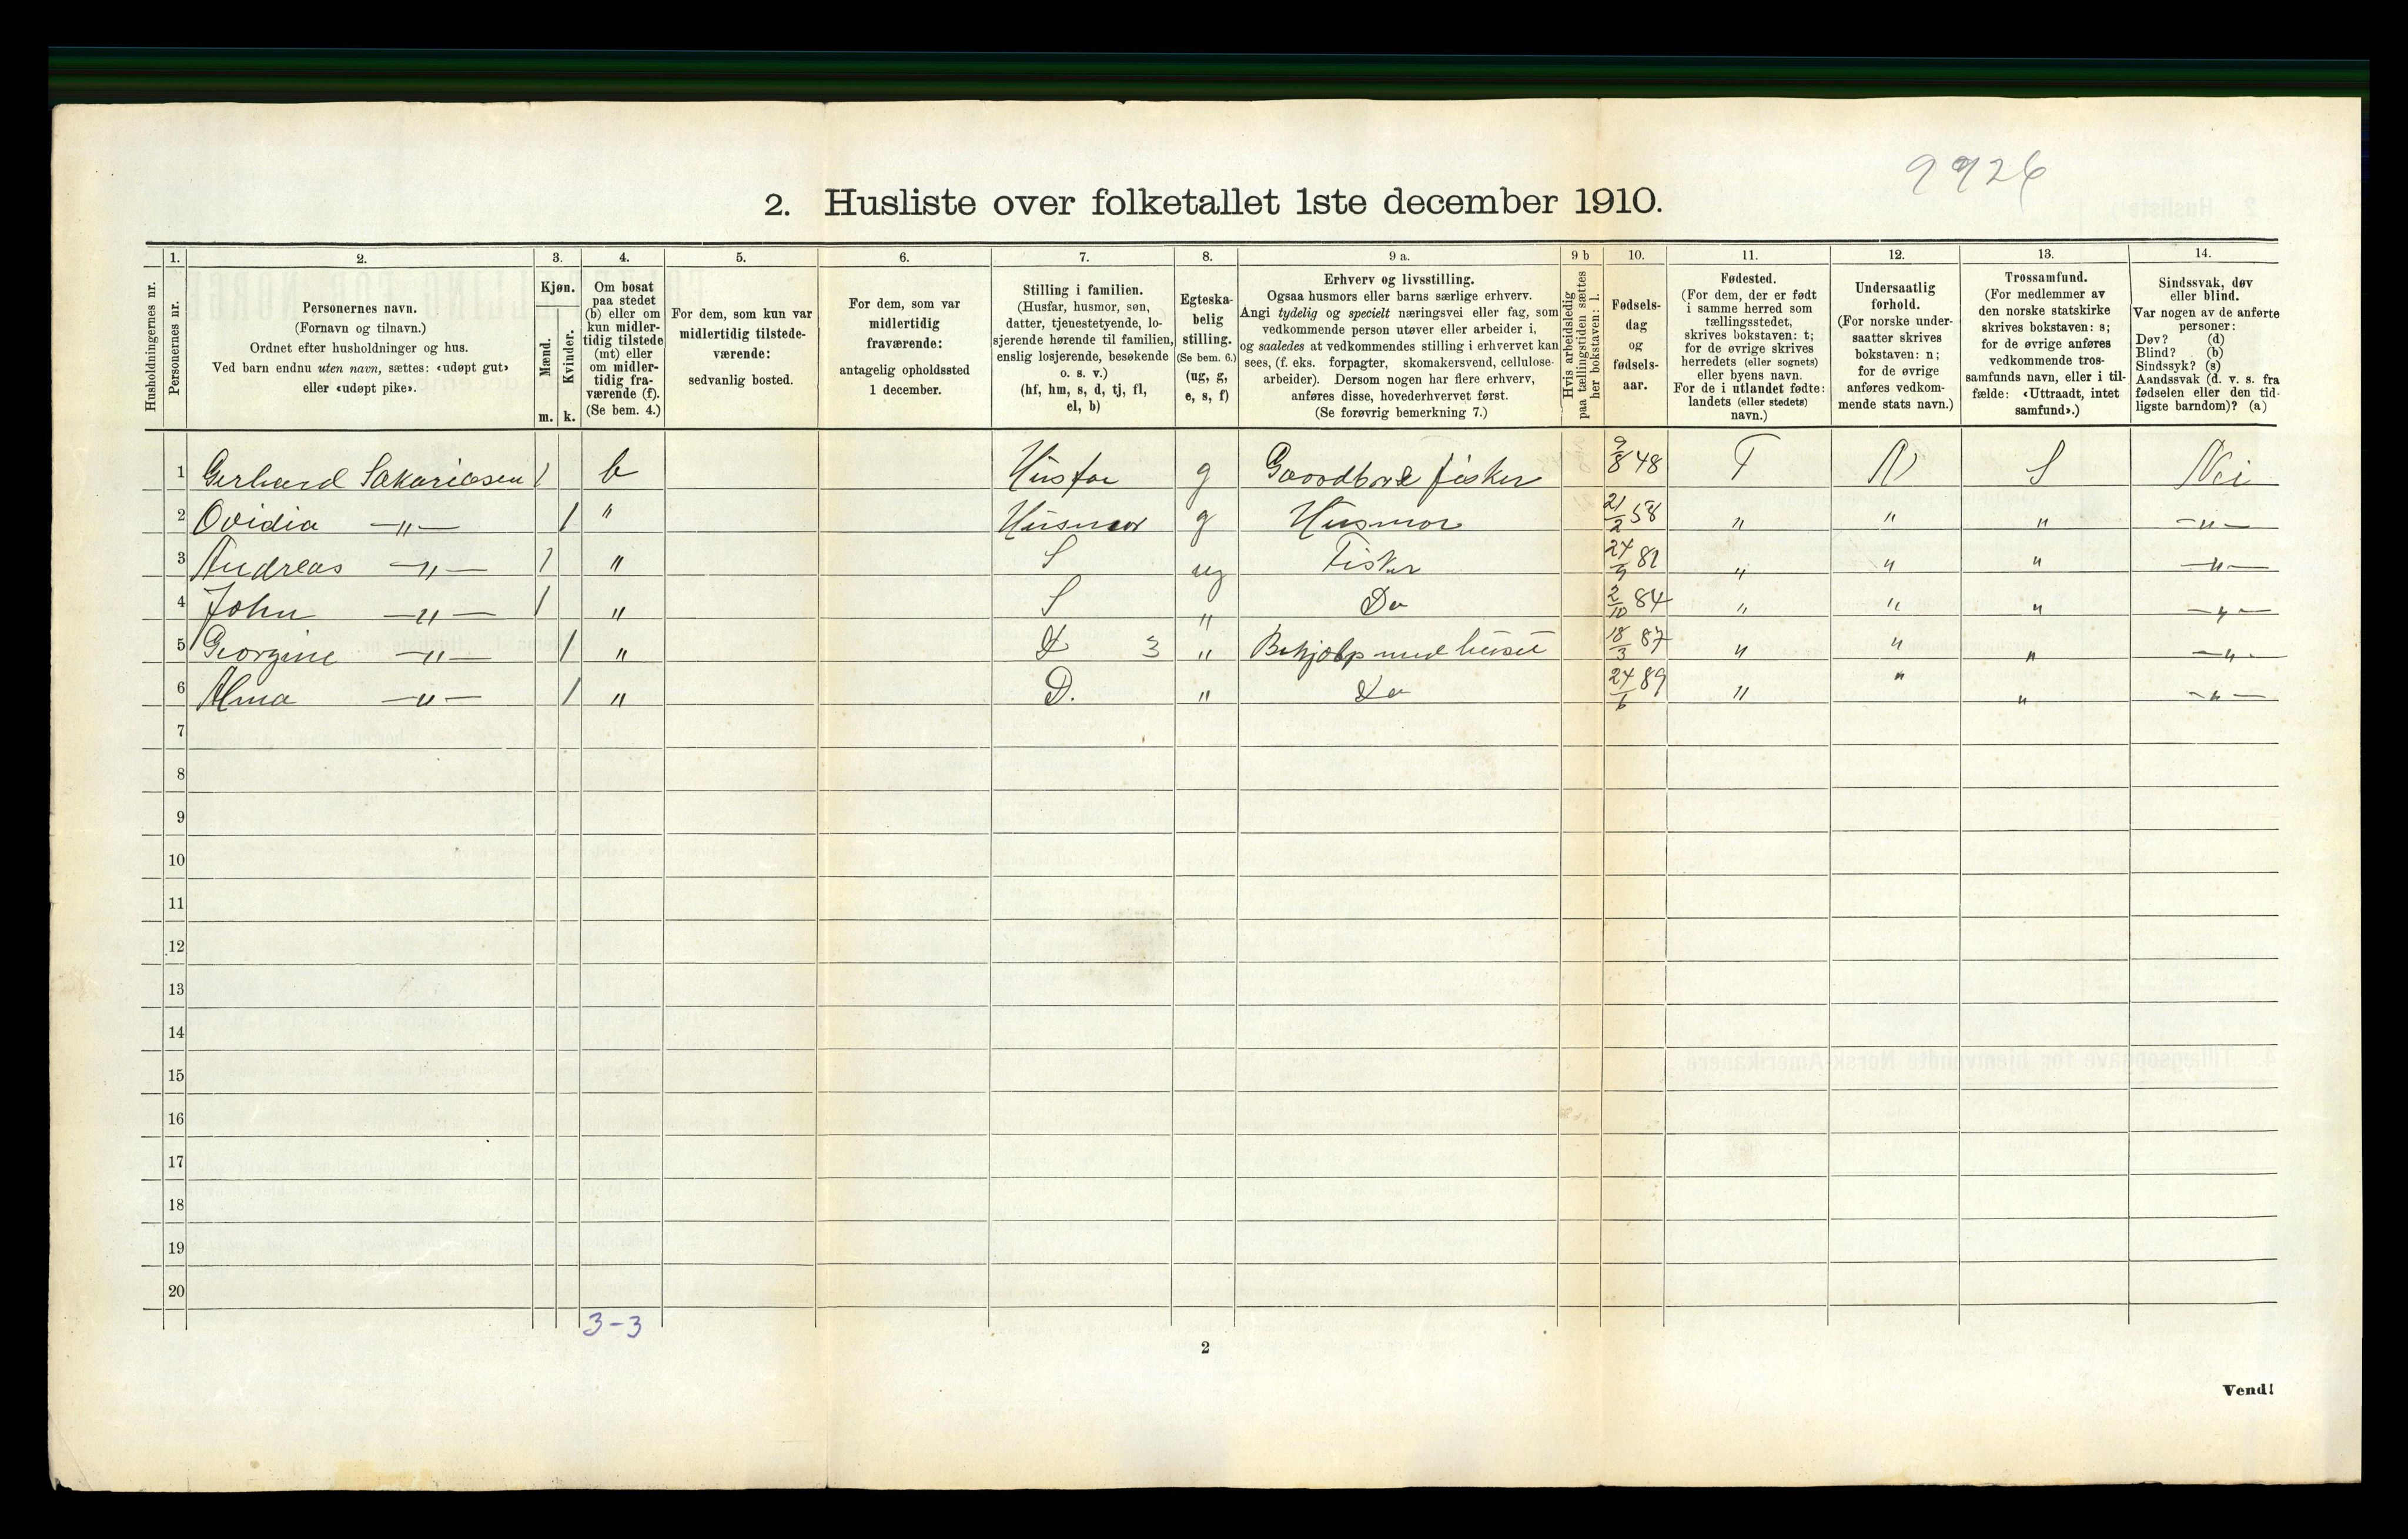 9926
2. Husliste over folketallet 1ste december 1910.
Husholdningernes nr.
1. Personernes nr.
2. Personernes navn.
(Fornavn og tilnavn.)
Ordnet efter husholdninger og hus.
Ved barn endnu uten navn, sættes: «udøpt gut»
eller «udøpt pike».
3. Kjøn.
Mænd. m.
Kvinder. k.
4. Om bosat
paa stedet
(b) eller om
kun midler-
tidig tilstede
(mt) eller
om midler-
tidig fra-
værende (f).
(Se bem. 4.)
5. For dem, som kun var
midlertidig tilstede-
værende:
sedvanlig bosted.
6. For dem, som var
midlertidig
fraværende:
antagelig opholdssted
1 december.
7. Stilling i familien.
(Husfar, husmor, søn,
datter, tjenestetyende, lo-
sjerende hørende til familien,
enslig losjerende, besøkende
o. s. v.)
(hf, hm, s, d, tj, fl,
el, b)
8. Egteska-
belig
stilling.
(Se bem. 6.)
(ug, g,
e, s, f)
9 a. Erhverv og livsstilling.
Ogsaa husmors eller barns særlige erhverv.
Angi tydelig og specielt næringsvei eller fag, som
vedkommende person utøver eller arbeider i,
og saaledes at vedkommendes stilling i erhvervet kan
sees, (f. eks. forpagter, skomakersvend, cellulose-
arbeider). Dersom nogen har flere erhverv,
anføres disse, hovederhvervet først.
(Se forøvrig bemerkning 7.)
9 b Hvis arbeidsledig
paa tællingstiden sættes
her bokstaven: l.
10. Fødsels-
dag
og
fødsels-
aar.
11. Fødested.
(For dem, der er født
i samme herred som
tællingsstedet,
skrives bokstaven: t;
for de øvrige skrives
herredets (eller sognets)
eller byens navn.
For de i utlandet fødte:
landets (eller stedets)
navn.)
12. Undersaatlig
forhold.
(For norske under-
saatter skrives
bokstaven: n;
for de øvrige
anføres vedkom-
mende stats navn.)
13. Trossamfund.
(For medlemmer av
den norske statskirke
skrives bokstaven: s;
for de øvrige anføres
vedkommende tros-
samfunds navn, eller i til-
fælde: «Uttraadt, intet
samfund».)
14. Sindssvak, døv
eller blind.
Var nogen av de anførte
personer:
Døv? (d)
Blind? (b)
Sindssyk? (s)
Aandssvak (d. v. s. fra
fødselen eller den tid-
ligste barndom)? (a)
1 Gerhard Sakariasen 1 b Husfar g Gaardbrd fisker 9/8 48 T N S Nei
2 Ovidia —"— 1 " Husmor g Husmor 21/2 58 " " " —"—
3 Andreas —"— 1 " S ug Fisker 24/9 82 " " " —"—
4 John —"— 1 " S " Do 2/10 84 " " " —"—
5 Georgine —"— 1 " D 3 " Behjælp med huset 18/3 87 " " " —"—
6 Alma —"— 1 " D. " Do 24/6 89 " " " —"—
7
8
9
10
11
12
13
14
15
16
17
18
19
20
3-3
2
Vend!